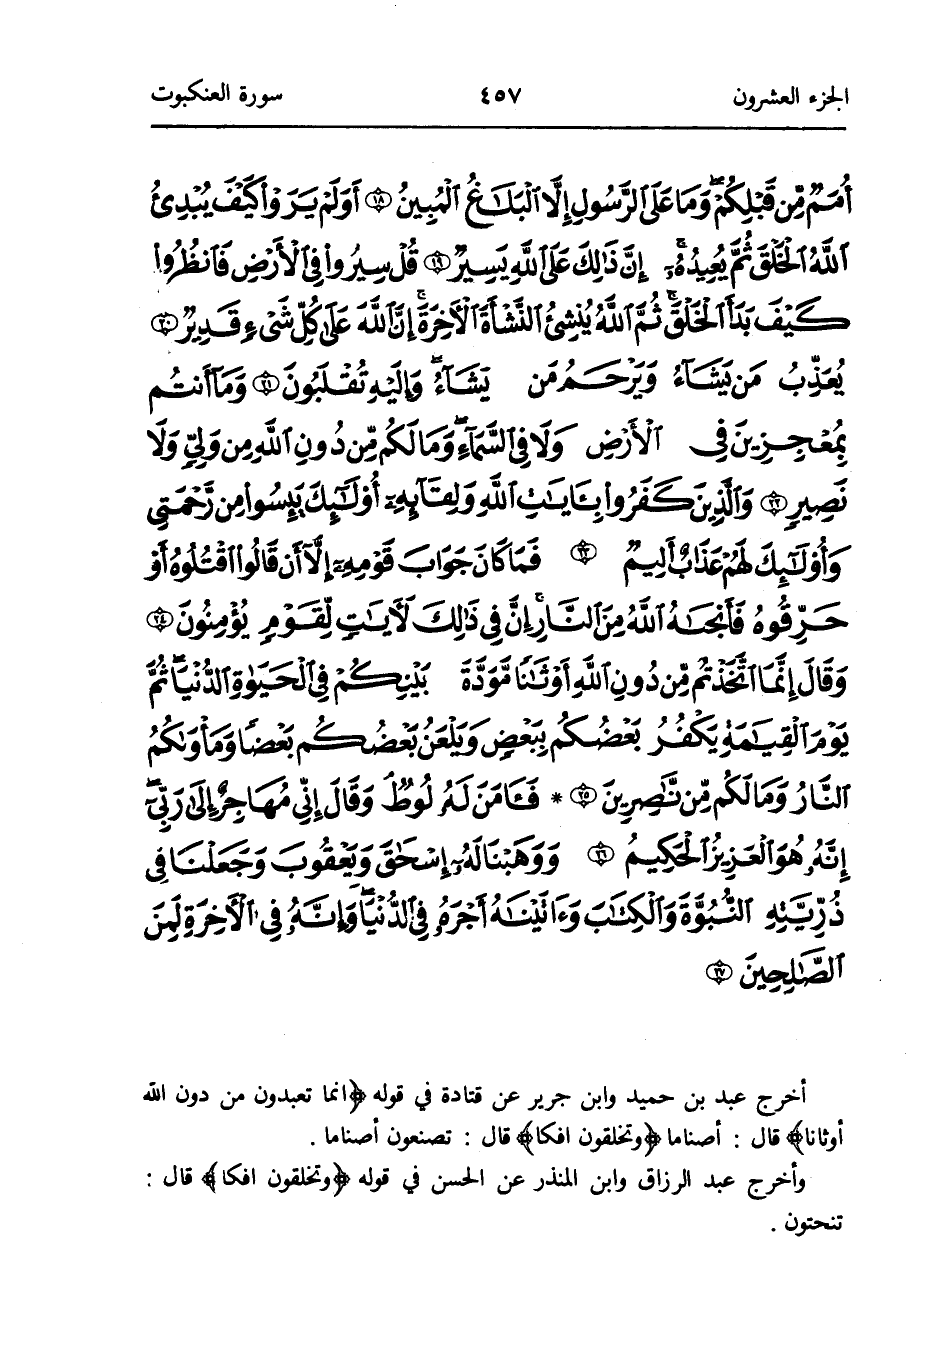 الجزء العشرون ٤٥٧ سورة العنكبوت
أُمَمٌ مِّن قَبْلِكُمْ ۖ وَمَا عَلَى ٱلرَّسُولِ إِلَّا ٱلْبَلَٰغُ ٱلْمُبِينُ ۝١٨ أَوَلَمْ يَرَوْا۟ كَيْفَ يُبْدِئُ
ٱللَّهُ ٱلْخَلْقَ ثُمَّ يُعِيدُهُۥٓ ۚ إِنَّ ذَٰلِكَ عَلَى ٱللَّهِ يَسِيرٌ ۝١٩ قُلْ سِيرُوا۟ فِى ٱلْأَرْضِ فَٱنظُرُوا۟
كَيْفَ بَدَأَ ٱلْخَلْقَ ۚ ثُمَّ ٱللَّهُ يُنشِئُ ٱلنَّشْأَةَ ٱلْءَاخِرَةَ ۚ إِنَّ ٱللَّهَ عَلَىٰ كُلِّ شَىْءٍ قَدِيرٌ ۝٢٠
يُعَذِّبُ مَن يَشَآءُ وَيَرْحَمُ مَن يَشَآءُ ۖ وَإِلَيْهِ تُقْلَبُونَ ۝٢١ وَمَآ أَنتُم
بِمُعْجِزِينَ فِى ٱلْأَرْضِ وَلَا فِى ٱلسَّمَآءِ ۖ وَمَا لَكُم مِّن دُونِ ٱللَّهِ مِن وَلِىٍّ وَلَا
نَصِيرٍ ۝٢٢ وَٱلَّذِينَ كَفَرُوا۟ بِـَٔايَٰتِ ٱللَّهِ وَلِقَآئِهِۦٓ أُو۟لَٰٓئِكَ يَئِسُوا۟ مِن رَّحْمَتِى
وَأُو۟لَٰٓئِكَ لَهُمْ عَذَابٌ أَلِيمٌ ۝٢٣ فَمَا كَانَ جَوَابَ قَوْمِهِۦٓ إِلَّآ أَن قَالُوا۟ ٱقْتُلُوهُ أَوْ
حَرِّقُوهُ فَأَنجَىٰهُ ٱللَّهُ مِنَ ٱلنَّارِ ۚ إِنَّ فِى ذَٰلِكَ لَءَايَٰتٍ لِّقَوْمٍ يُؤْمِنُونَ ۝٢٤
وَقَالَ إِنَّمَا ٱتَّخَذْتُم مِّن دُونِ ٱللَّهِ أَوْثَٰنًا مَّوَدَّةَ بَيْنِكُمْ فِى ٱلْحَيَوٰةِ ٱلدُّنْيَا ۖ ثُمَّ
يَوْمَ ٱلْقِيَٰمَةِ يَكْفُرُ بَعْضُكُم بِبَعْضٍ وَيَلْعَنُ بَعْضُكُم بَعْضًا وَمَأْوَىٰكُمُ
ٱلنَّارُ وَمَا لَكُم مِّن نَّٰصِرِينَ ۝٢٥ * فَـَٔامَنَ لَهُۥ لُوطٌ ۘ وَقَالَ إِنِّى مُهَاجِرٌ إِلَىٰ رَبِّىٓ ۖ
إِنَّهُۥ هُوَ ٱلْعَزِيزُ ٱلْحَكِيمُ ۝٢٦ وَوَهَبْنَا لَهُۥٓ إِسْحَٰقَ وَيَعْقُوبَ وَجَعَلْنَا فِى
ذُرِّيَّتِهِ ٱلنُّبُوَّةَ وَٱلْكِتَٰبَ وَءَاتَيْنَٰهُ أَجْرَهُۥ فِى ٱلدُّنْيَا ۖ وَإِنَّهُۥ فِى ٱلْءَاخِرَةِ لَمِنَ
ٱلصَّٰلِحِينَ ۝٢٧
أخرج عبد بن حميد وابن جرير عن قتادة في قوله ﴿انما تعبدون من دون الله
أوثانا﴾ قال : أصناما ﴿وتخلقون افكا﴾ قال : تصنعون أصناما .
وأخرج عبد الرزاق وابن المنذر عن الحسن في قوله ﴿وتخلقون افكا﴾ قال :
تنحتون .